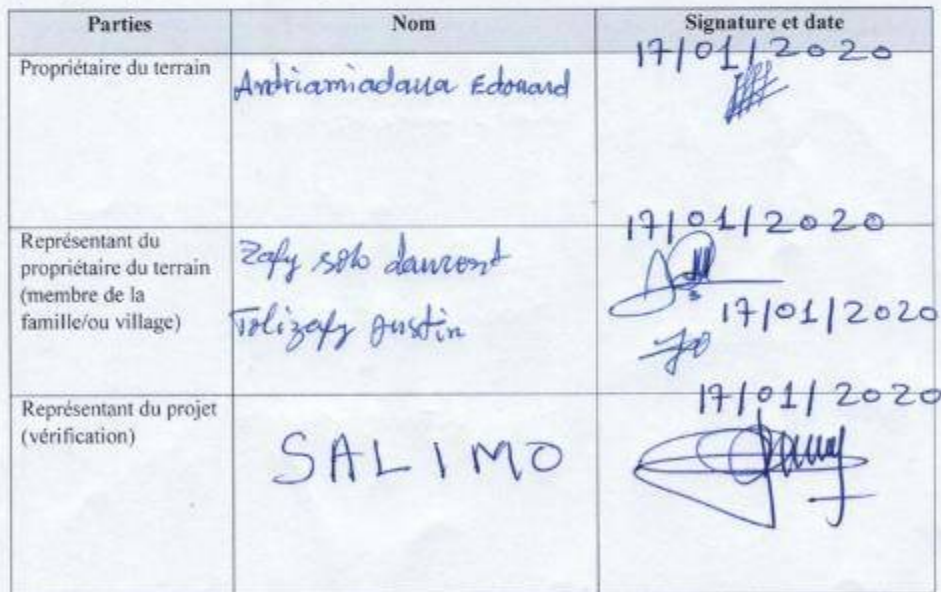 Parties Nom Signature et date
Propriétaire du terrain Andriamiadana Edouard 17/01/2020
Représentant du propriétaire du terrain (membre de la famille/ou village)
Zafy solo 17/01/2020
Tolizafy Justin 17/01/2020
Représentant du projet (vérification) SALIMO 17/01/2020